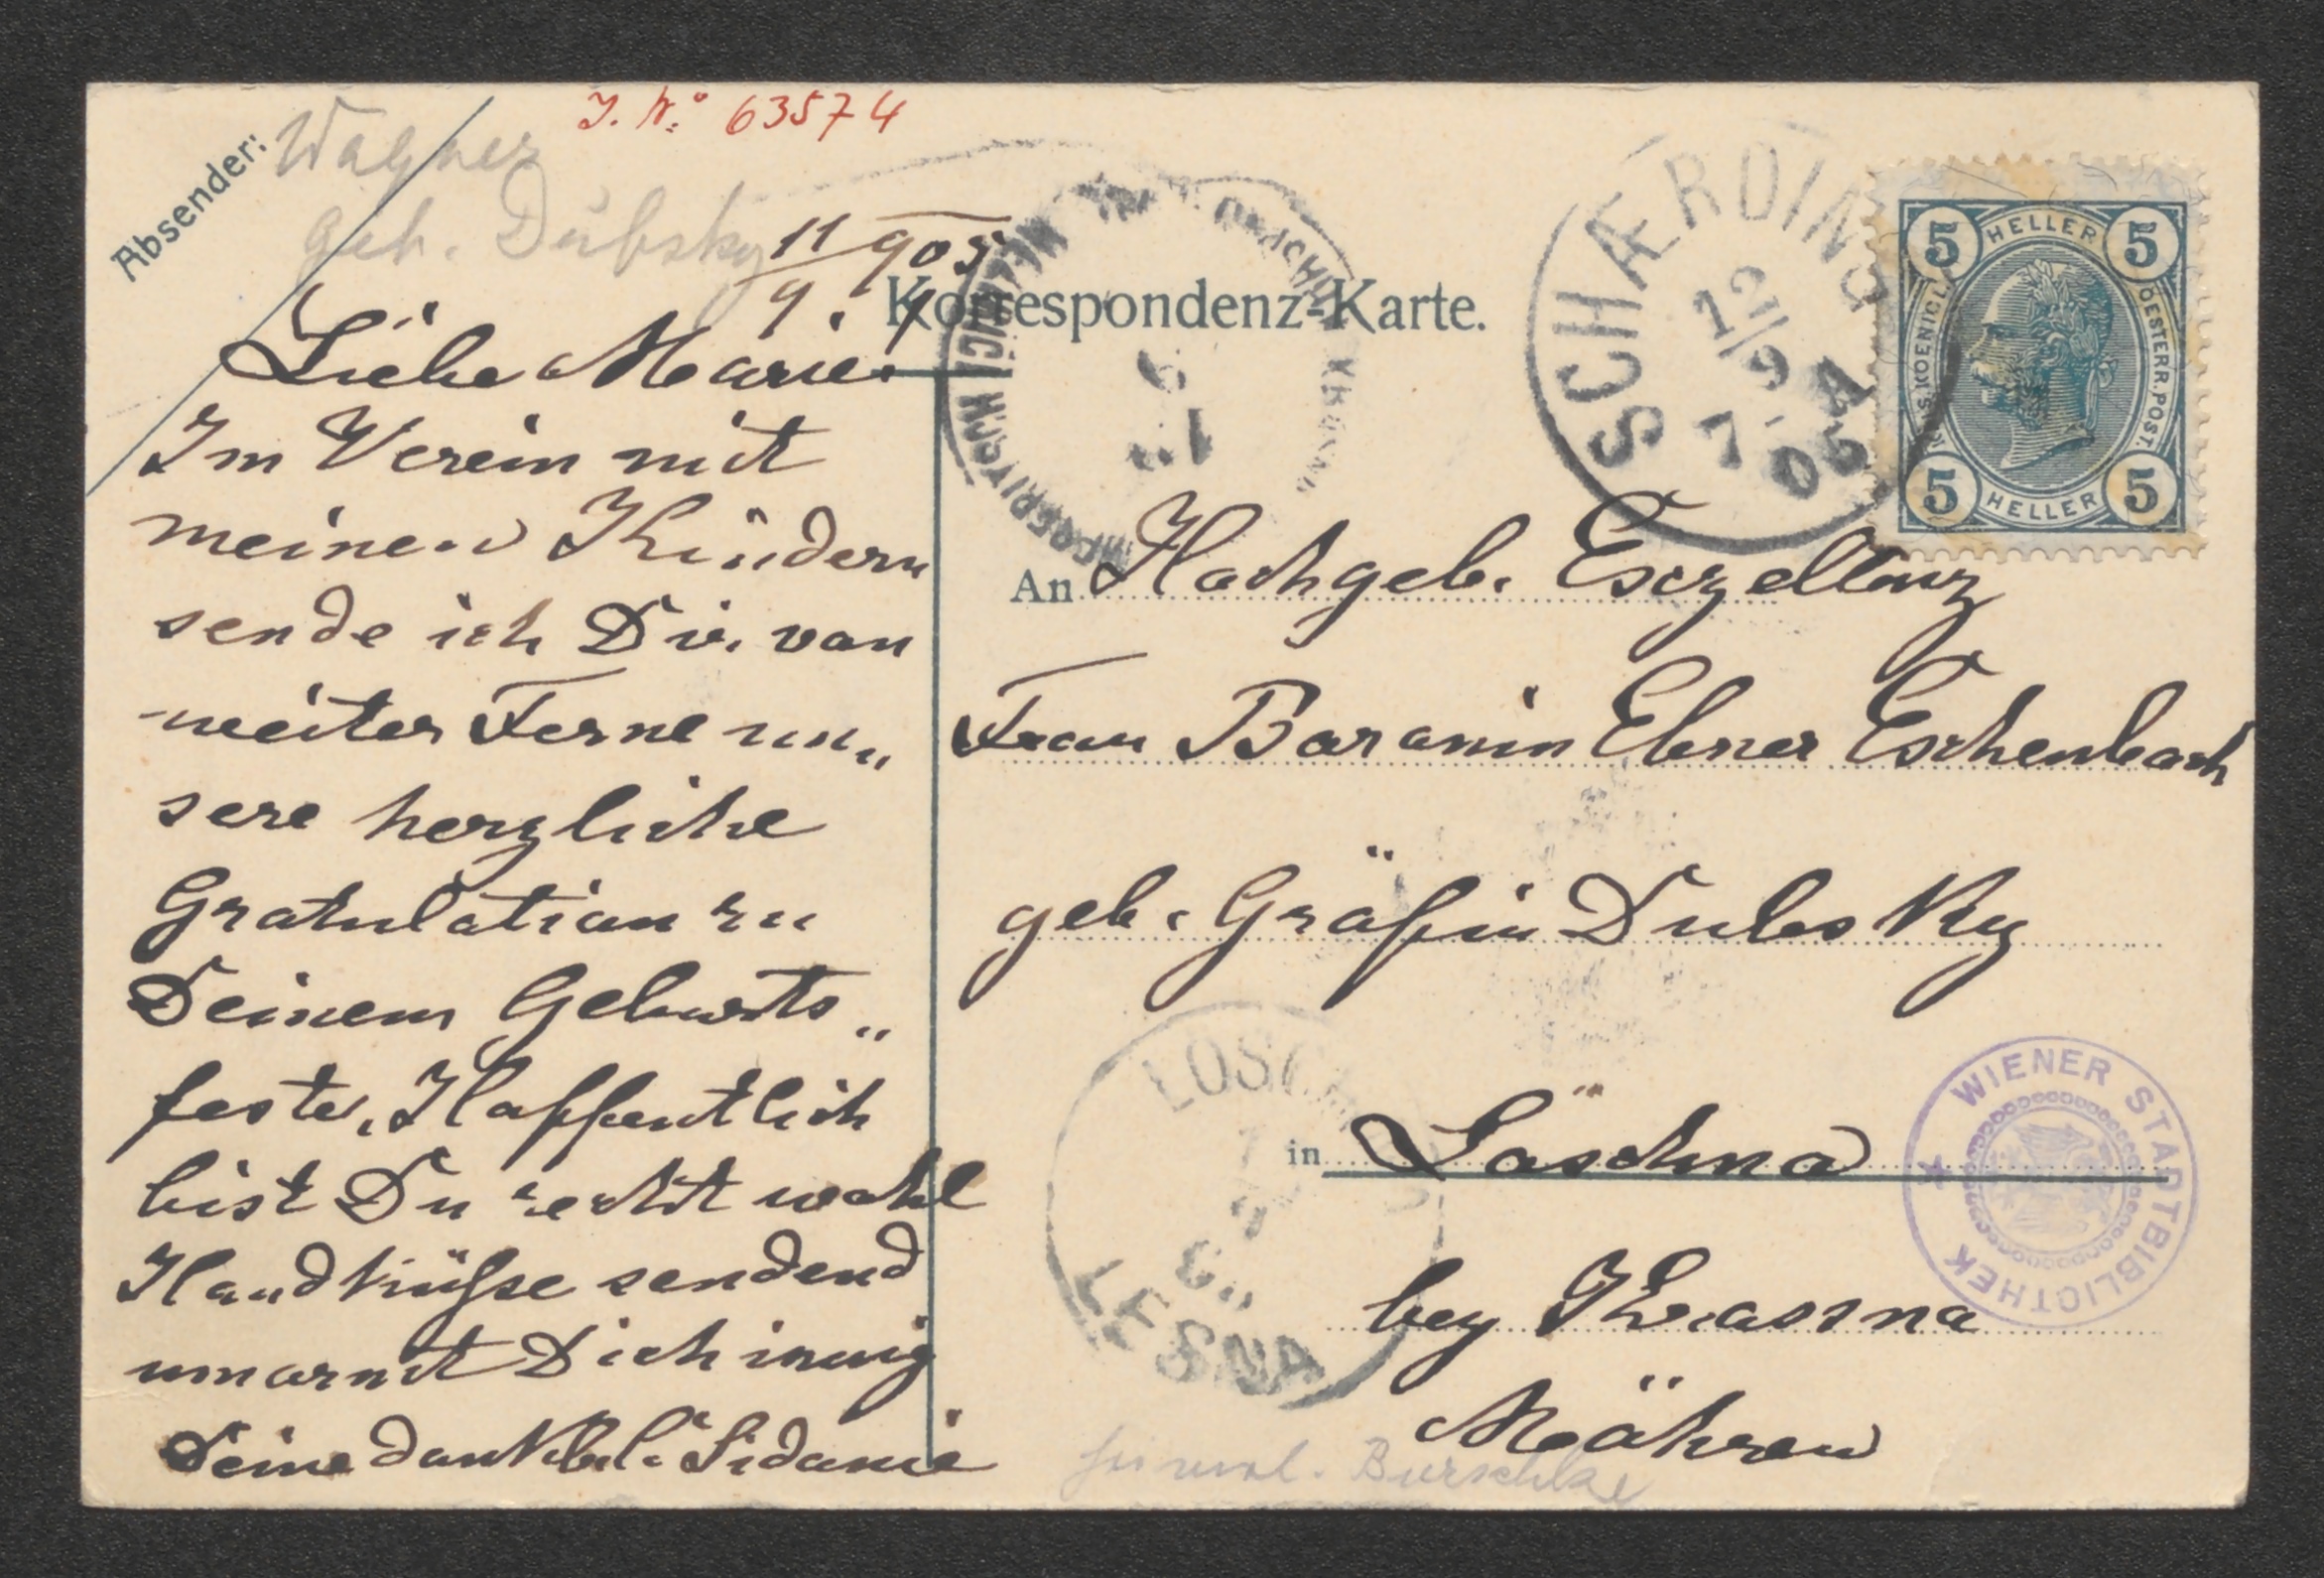 J. No: 63574
Absender:
Wagner
geb. Dubsky
11/9. 905
Korrespondenz-Karte.
Liebe Marie!
Im Verein mit
meinen Kindern
sende ich Dir von
weiter Ferne un„
sere herzliche
Gratulation zu
Deinem Geburts„
feste, Hoffentlich
bist Du recht wohl
Handküße sendend
umarmt Dich innig
Deine dankb. Sidonie
SCHÆRDING
12/9
7 05
A
5 HELLER 5
KAIS. KOENIGL. OESTERR. POST.
5 HELLER 5
An Hochgeb. Exzellenz
Frau Baronin Ebner Eschenbach
geb. Gräfin Dubsky
in Löschna
bey Krasna
Mähren
LESNA
WIENER STADTBIBLIOTHEK